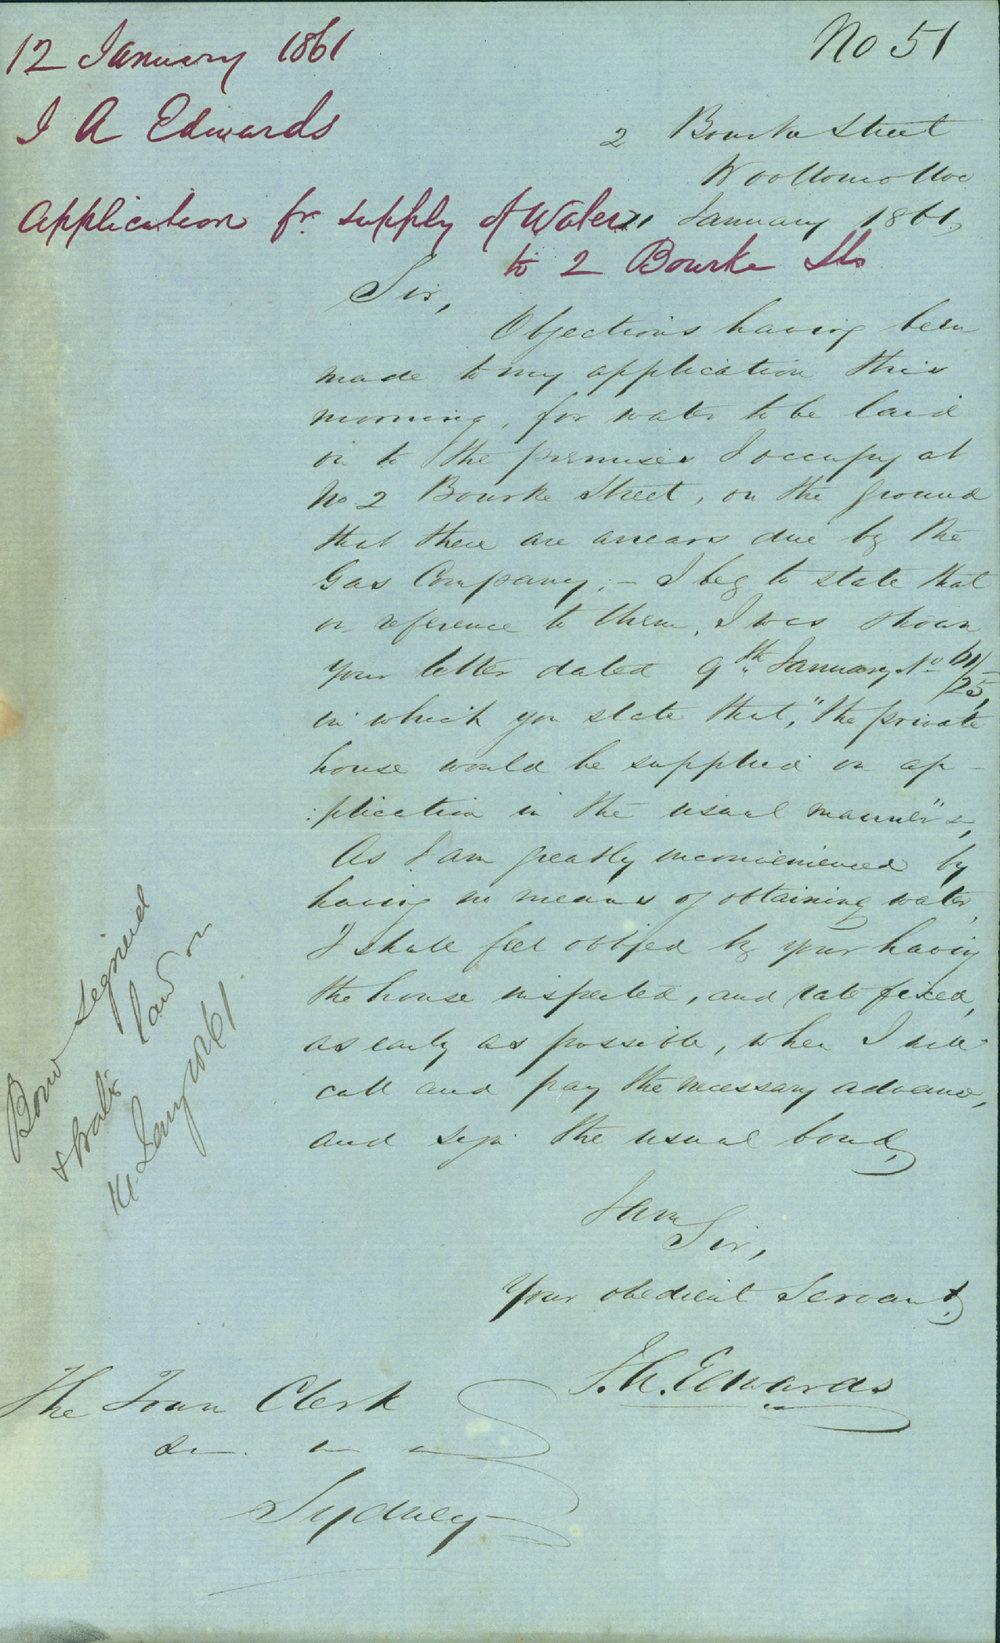 No 51
12 January 1861
J A Edwards
Application for supply of Water
to 2 Bourke St
2 Bourke Street
Woolloomolloo
11 January 1861,
Sir,
Objections having been
made to my application this
morning, for water to be laid
on to the premises I occupy at
No 2 Bourke Street, on the ground
that there are arrears due by the
Gas Company; - I beg to state that
on reference to them, I was shown
your letter dated 9th January No 61/
125,
in which you state that, "the private
house would be supplied on ap-
:plication in the usual manner" &c,
As I am greatly inconvenienced by
having no means of obtaining water,
I shall feel obliged by your having
the house inspected, and rate fixed,
as early as possible, when I will
call and pay the necessary advance,
and sign the usual bond,
I am
Sir,
Your obedient Servant,
J. A. Edwards
The Town Clerk
Sydney
signed
& water laid on
1861